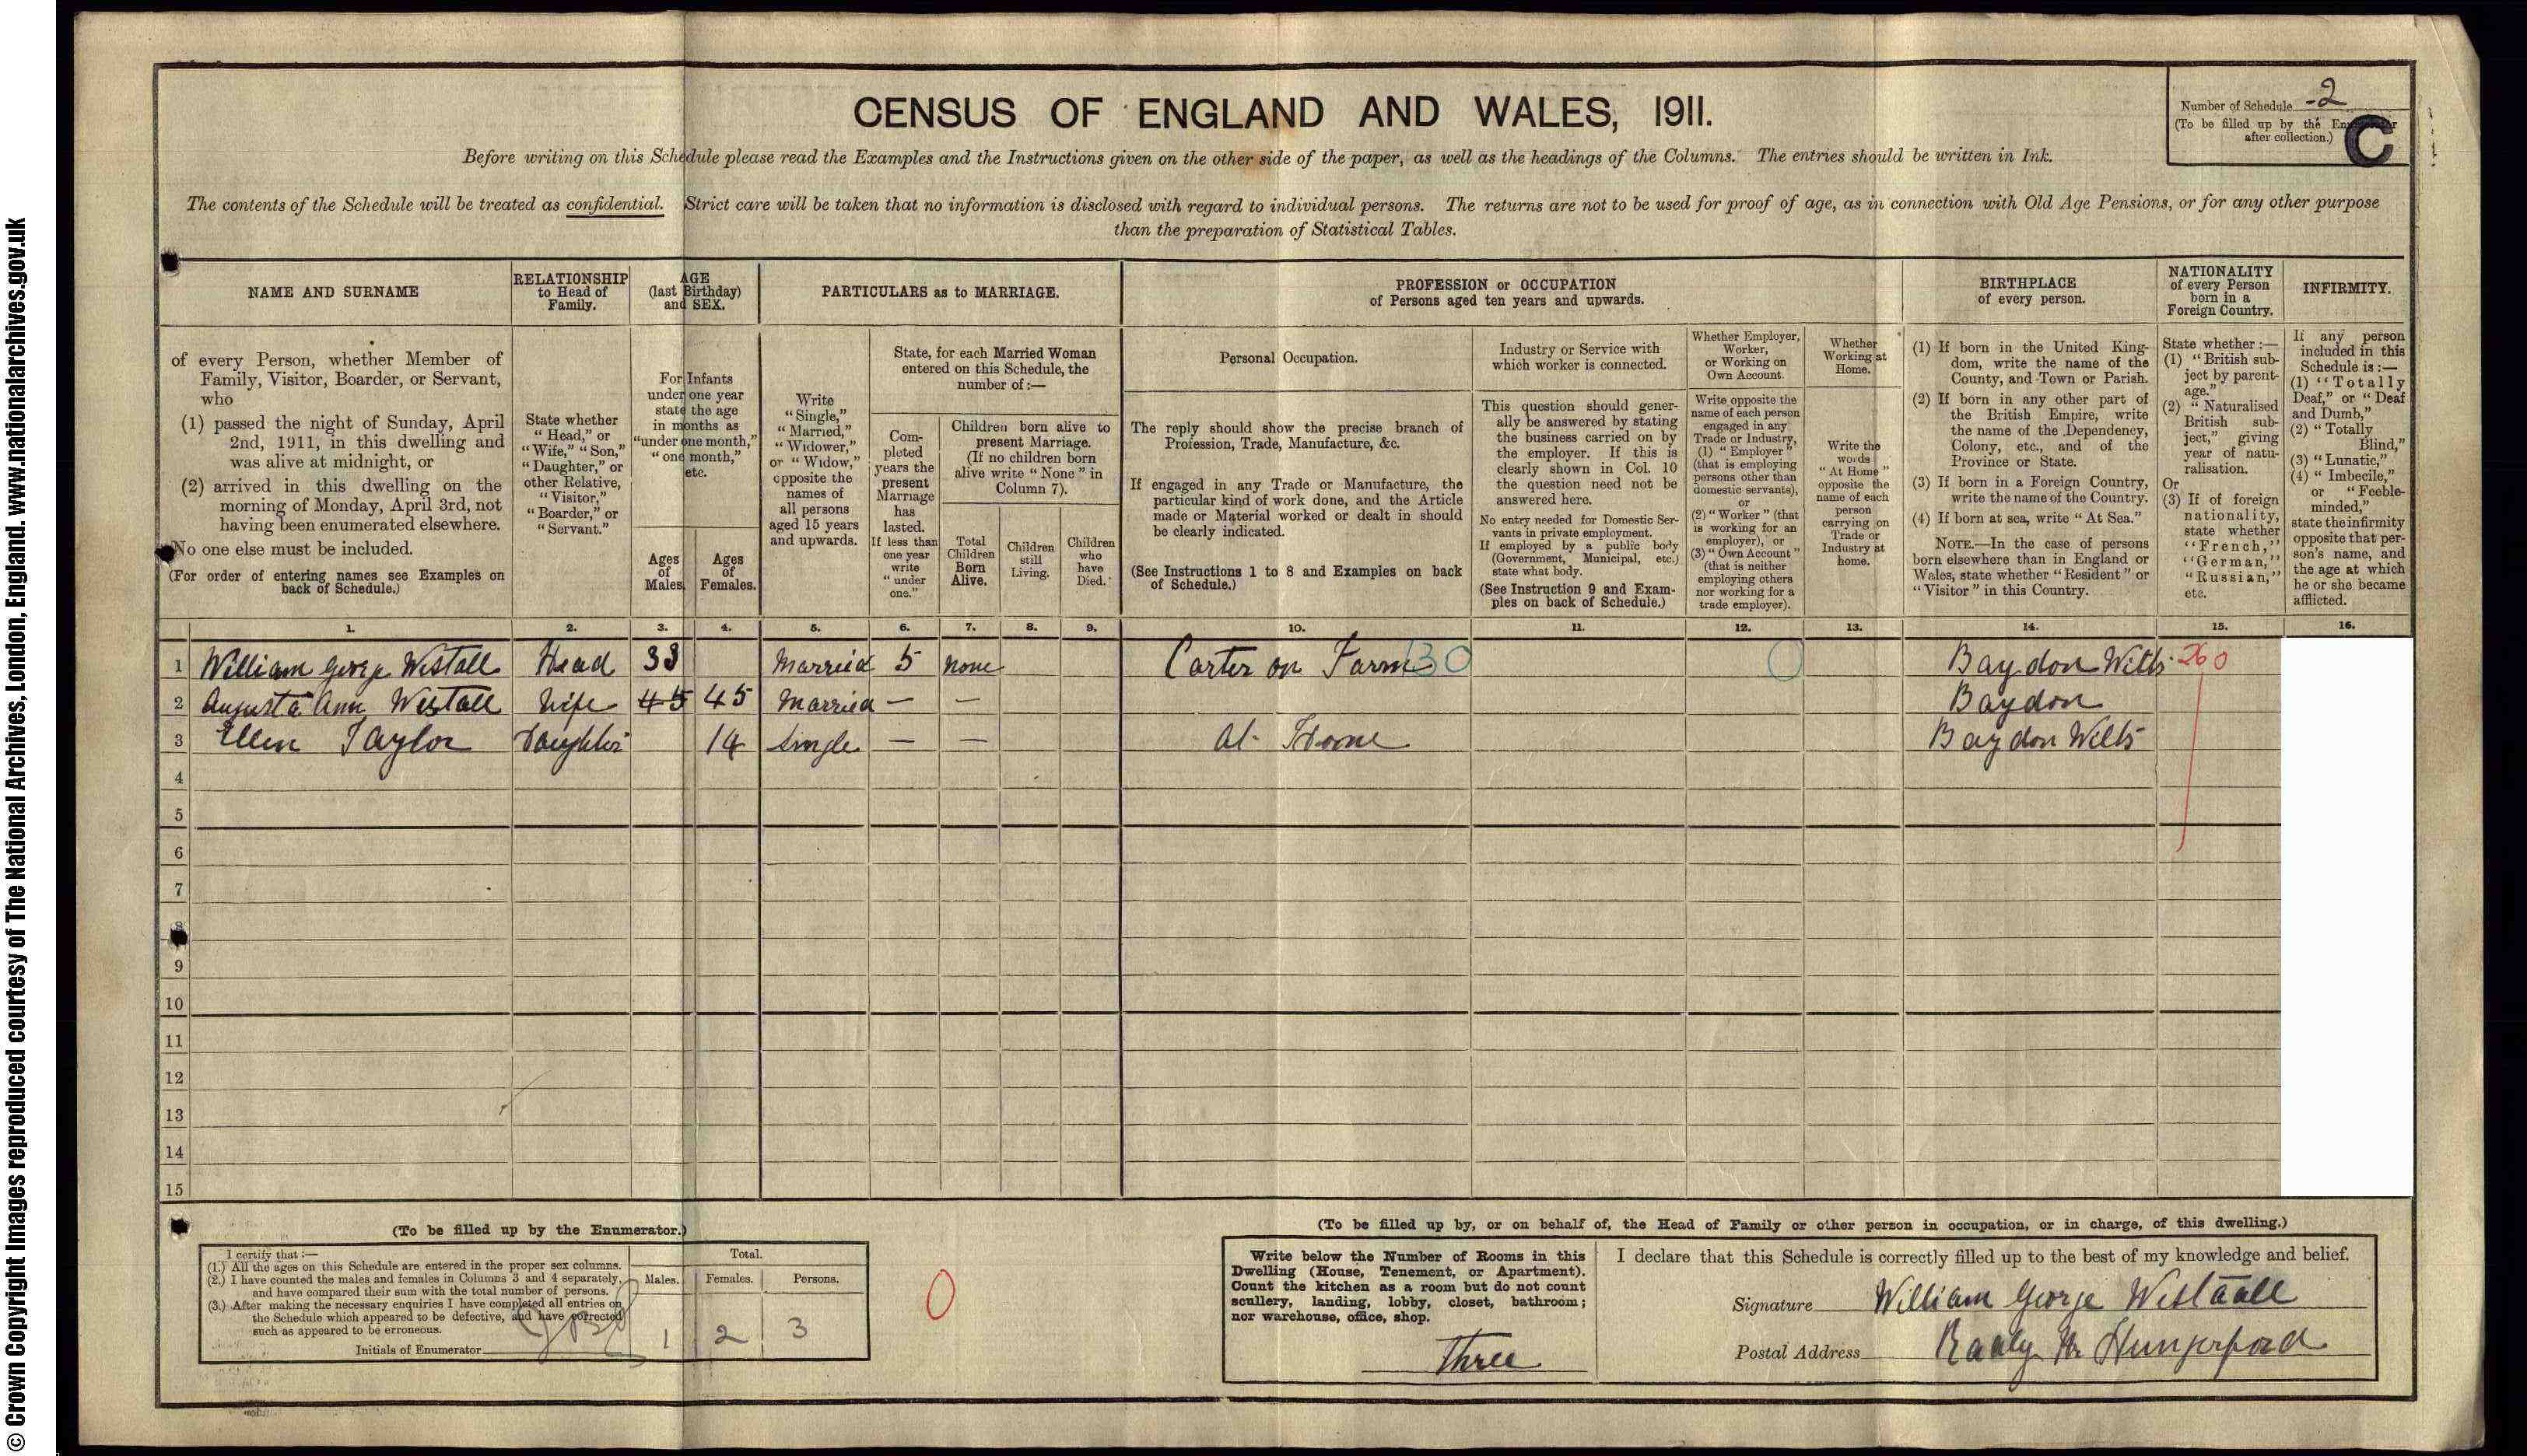 CENSUS OF ENGLAND AND WALES, 1911.
Number of Schedule 2
(To be filled up by the
after collection.)
C
Before writing on this Schedule please read the Examples and the Instructions given on the other side of the paper, as well as the headings of the Columns. The entries should be written in Ink.
The contents of the Schedule will be treated as confidential. Strict care will be taken that no information is disclosed with regard to individual persons. The returns are not to be used for proof of age, as in connection with Old Age Pensions, or for any other purpose
than the preparation of Statistical Tables.
NAME AND SURNAME
of every Person, whether Member of
Family, Visitor, Boarder, or Servant,
who
(1) passed the night of Sunday, April
2nd, 1911, in this dwelling and
was alive at midnight, or
(2) arrived in this dwelling on the
morning of Monday, April 3rd, not
having been enumerated elsewhere.
No one else must be included.
(For order of entering names see Examples on
back of Schedule.)
RELATIONSHIP
to Head of
Family.
State whether
"Head," or
"Wife," "Son,"
"Daughter," or
other Relative,
"Visitor,"
"Boarder," or
"Servant."
AGE
(last Birthday)
and SEX.
For Infants
under one year
state the age
in months as
"under one month,"
"one month,"
etc.
Ages
of
Males.
Ages
of
Females.
PARTICULARS as to MARRIAGE.
Write
"Single,"
"Married,"
"Widower,"
or "Widow,"
opposite the
names of
all persons
aged 15 years
and upwards.
State, for each Married Woman
entered on this Schedule, the
number of:—
Com-
pleted
years the
present
Marriage
has
lasted.
If less than
one year
write
"under
one."
Children born alive to
present Marriage.
(If no children born
alive write "None" in
Column 7).
Total
Children
Born
Alive.
Children
still
Living.
Children
who
have
Died.
PROFESSION or OCCUPATION
of Persons aged ten years and upwards.
Personal Occupation.
The reply should show the precise branch of
Profession, Trade, Manufacture, &c.
If engaged in any Trade or Manufacture, the
particular kind of work done, and the Article
made or Material worked or dealt in should
be clearly indicated.
(See Instructions 1 to 8 and Examples on back
of Schedule.)
Industry or Service with
which worker is connected.
This question should gener-
ally be answered by stating
the business carried on by
the employer. If this is
clearly shown in Col. 10
the question need not be
answered here.
No entry needed for Domestic Ser-
vants in private employment.
If employed by a public body
(Government, Municipal, etc.)
state what body.
(See Instruction 9 and Exam-
ples on back of Schedule.)
Whether Employer,
Worker,
or Working on
Own Account.
Write opposite the
name of each person
engaged in any
Trade or Industry,
(1) "Employer"
(that is employing
persons other than
domestic servants),
or
(2) "Worker" (that
is working for an
employer), or
(3) "Own Account"
(that is neither
employing others
nor working for a
trade employer).
Whether
Working at
Home.
Write the
words
"At Home"
opposite the
name of each
person
carrying on
Trade or
Industry at
home.
BIRTHPLACE
of every person.
(1) If born in the United King-
dom, write the name of the
County, and Town or Parish.
(2) If born in any other part of
the British Empire, write
the name of the Dependency,
Colony, etc., and of the
Province or State.
(3) If born in a Foreign Country,
write the name of the Country.
(4) If born at sea, write "At Sea."
NOTE.—In the case of persons
born elsewhere than in England or
Wales, state whether "Resident" or
"Visitor" in this Country.
NATIONALITY
of every Person
born in a
Foreign Country.
State whether:—
(1) "British sub-
ject by parent-
age."
(2) "Naturalised
British sub-
ject," giving
year of natu-
ralisation.
Or
(3) If of foreign
nationality,
state whether
"French,"
"German,"
"Russian,"
etc.
INFIRMITY.
If any person
included in this
Schedule is:—
(1) "Totally
Deaf," or "Deaf
and Dumb,"
(2) "Totally
Blind,"
(3) "Lunatic,"
(4) "Imbecile,"
or "Feeble-
minded,"
state the infirmity
opposite that per-
son's name, and
the age at which
he or she became
afflicted.
1. 2. 3. 4. 5. 6. 7. 8. 9. 10. 11. 12. 13. 14. 15. 16.
1 William George Westall Head 33 Married 5 none Carter on Farm 30 0 Baydon Wilts 260
2 Augusta Ann Westall Wife 45 45 Married — — Baydon
3 Ellen Taylor Daughter 14 Single — — At Home Baydon Wilts
4
5
6
7
8
9
10
11
12
13
14
15
(To be filled up by the Enumerator.)
I certify that:—
(1.) All the ages on this Schedule are entered in the proper sex columns.
(2.) I have counted the males and females in Columns 3 and 4 separately,
and have compared their sum with the total number of persons.
(3.) After making the necessary enquiries I have completed all entries on
the Schedule which appeared to be defective, and have corrected
such as appeared to be erroneous.
Initials of Enumerator
Total.
Males. Females. Persons.
1 2 3
0
(To be filled up by, or on behalf of, the Head of Family or other person in occupation, or in charge, of this dwelling.)
Write below the Number of Rooms in this
Dwelling (House, Tenement, or Apartment).
Count the kitchen as a room but do not count
scullery, landing, lobby, closet, bathroom;
nor warehouse, office, shop.
Three
I declare that this Schedule is correctly filled up to the best of my knowledge and belief.
Signature William George Westaall
Postal Address Nr Hungerford
© Crown Copyright Images reproduced courtesy of The National Archives, London, England. www.nationalarchives.gov.uk